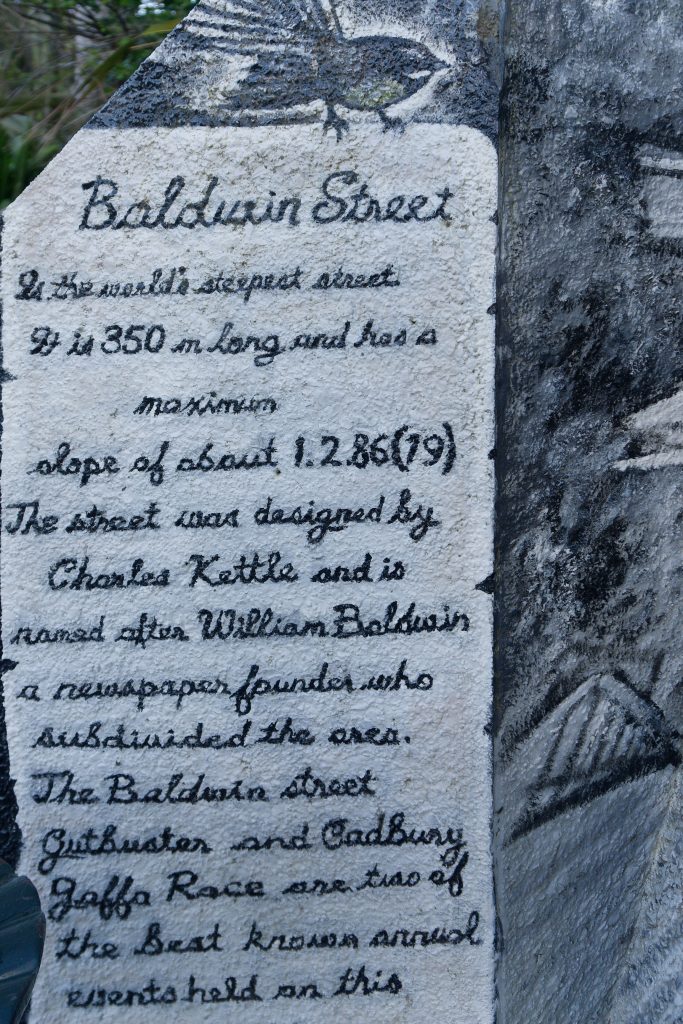 Baldwin Street
Is the world's steepest street.
It is 350 m long and has a
maximum
slope of about 1.2.86(19)
The street was designed by
Charles Kettle and is
named after William Baldwin
a newspaper founder who
subdivided the area.
The Baldwin street
Gutbuster and Cadbury
Jaffa Race are two of
the best known annual
events held on this